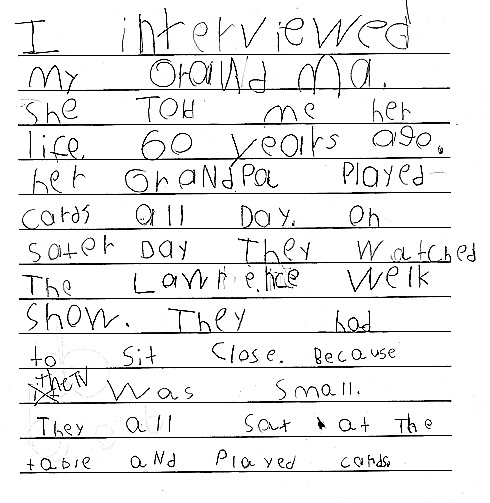 I interviewed
my Grand Ma.
She TOld me her
life 60 years ago.
her GraNdPa Played
cards all Day. On
sater Day They Watched
The Lawrence Welk
Show. They had
to Sit Close. Because
the TV Was Small.
They all Sat at The
table aNd Played cards.